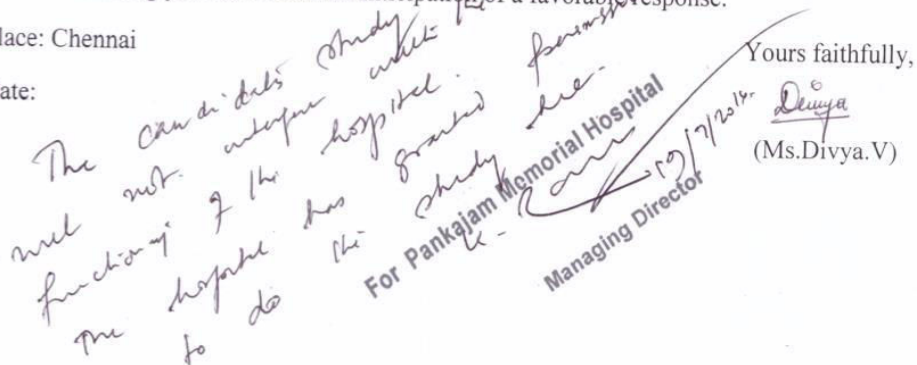 of a favorable response.
lace: Chennai
Yours faithfully,
ate:
Divya
(Ms.Divya.V)
The candidate's study
will not interfere with the
functioning of the hospital.
The hospital has granted permission
to do the study here.
For Pankajam Memorial Hospital
19/7/2014.
Managing Director